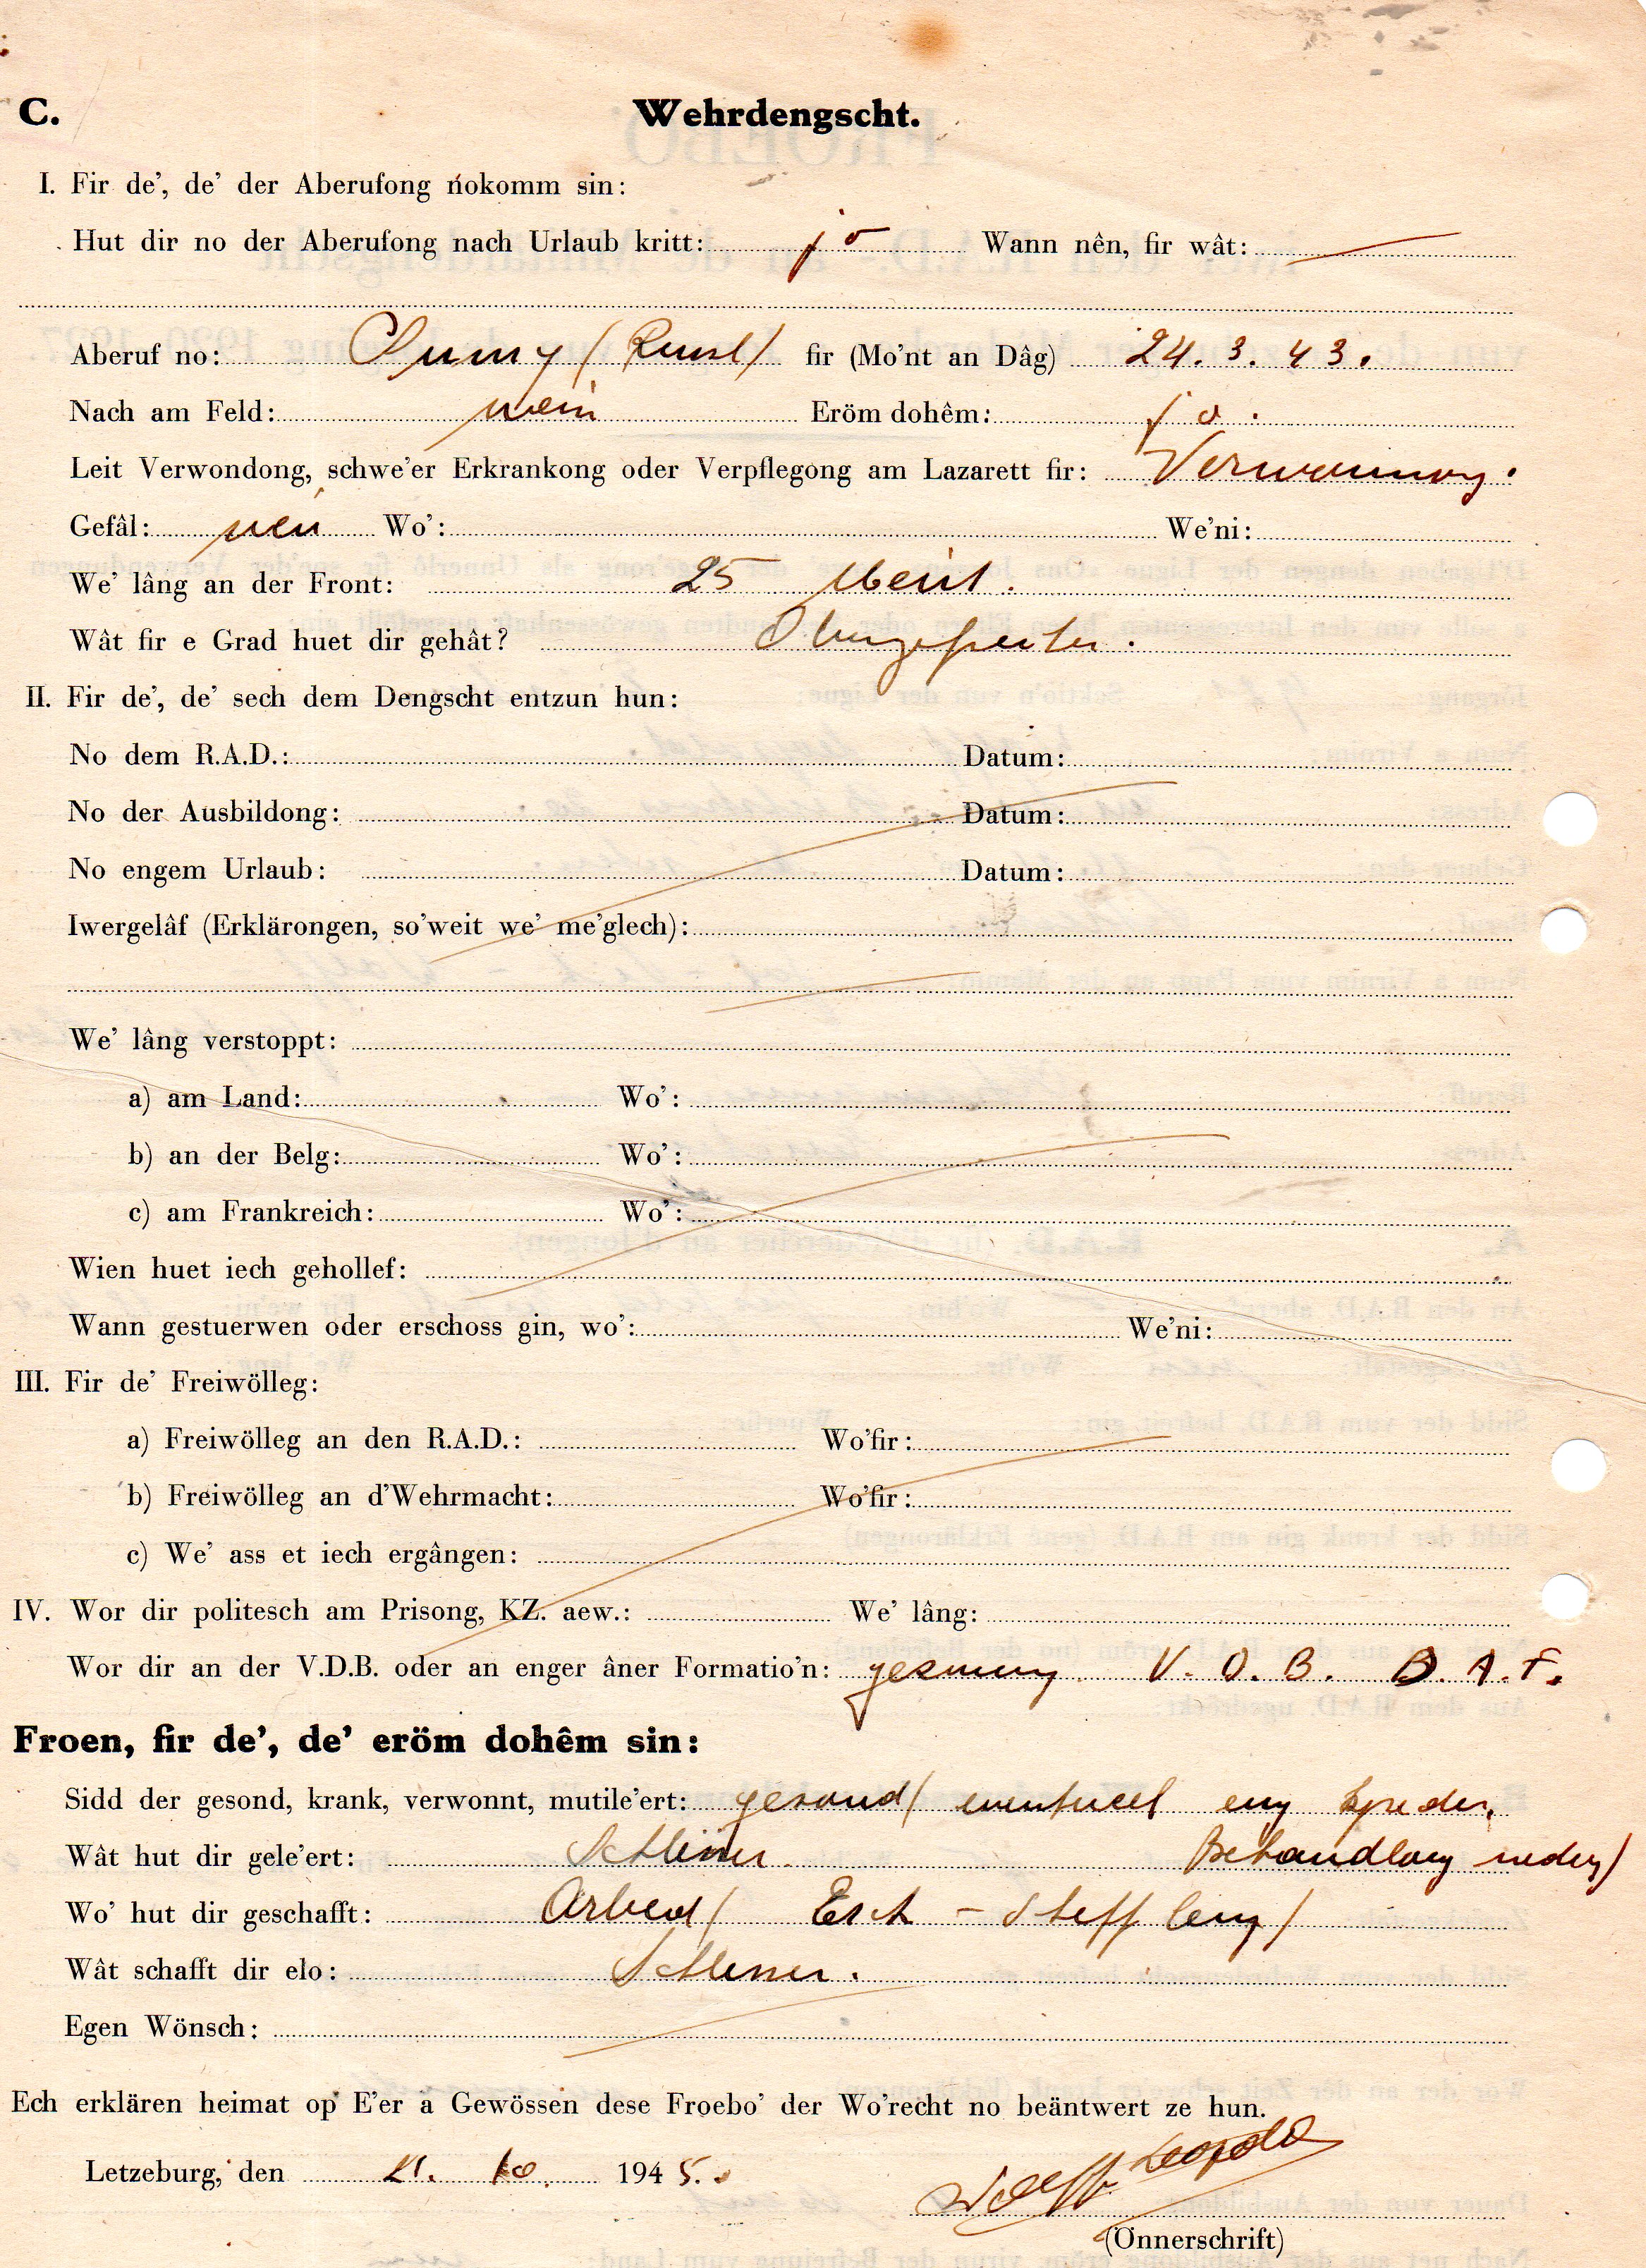 C. Wehrdengscht.
I. Fir de’, de’ der Aberufong nokomm sin:
Hut dir no der Aberufong nach Urlaub kritt: jo Wann nên, fir wât: —
Aberuf no: fir (Mo’nt an Dâg) 24. 3. 43.
Nach am Feld: nein Eröm dohêm: jo.
Leit Verwondong, schwe’er Erkrankong oder Verpflegong am Lazarett fir:
Gefâl: nein Wo’: We’ni:
We’ lâng an der Front: 25 Meint.
Wât fir e Grad huet dir gehât?
II. Fir de’, de’ sech dem Dengscht entzun hun:
No dem R.A.D.: Datum:
No der Ausbildong: Datum:
No engem Urlaub: Datum:
Iwergelâf (Erklärongen, so’weit we’ me’glech):
We’ lâng verstoppt:
a) am Land: Wo’:
b) an der Belg: Wo’:
c) am Frankreich: Wo’:
Wien huet iech gehollef:
Wann gestuerwen oder erschoss gin, wo’: We’ni:
III. Fir de’ Freiwölleg:
a) Freiwölleg an den R.A.D.: Wo’fir:
b) Freiwölleg an d’Wehrmacht: Wo’fir:
c) We’ ass et iech ergângen:
IV. Wor dir politesch am Prisong, KZ. aew.: We’ lâng:
Wor dir an der V.D.B. oder an enger âner Formatio’n: V. D. B. D. A. F.
Froen, fir de’, de’ eröm dohêm sin:
Sidd der gesond, krank, verwonnt, mutile’ert: gesond/ eventuell eng
Wât hut dir gele’ert: Schlesser. Behandlung
Wo’ hut dir geschafft: Arbed/ Esch -
Wât schafft dir elo: Schlesser.
Egen Wönsch:
Ech erklären heimat op E’er a Gewössen dese Froebo’ der Wo’recht no beäntwert ze hun.
Letzeburg, den 21. 10. 1945.
Wolff Leopold
(Önnerschrift)